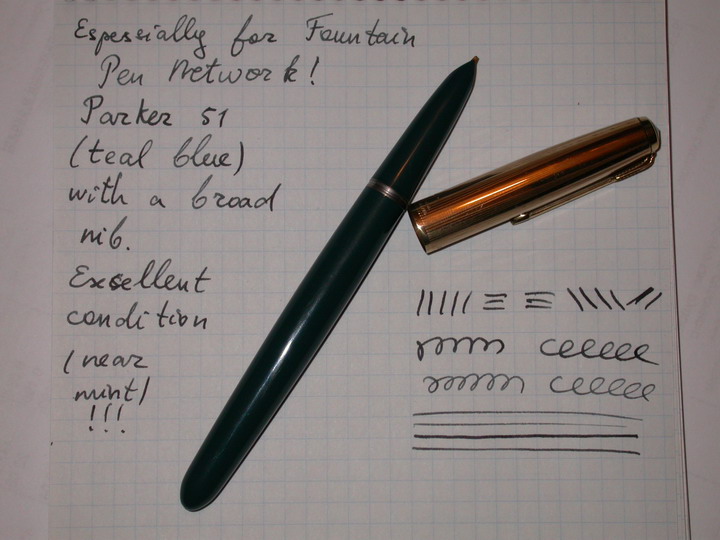 Espessially for Fountain
Pen Network!
Parker 51
(teal blue)
with a broad
nib.
Exsellent
condition
(near
mint)
!!!